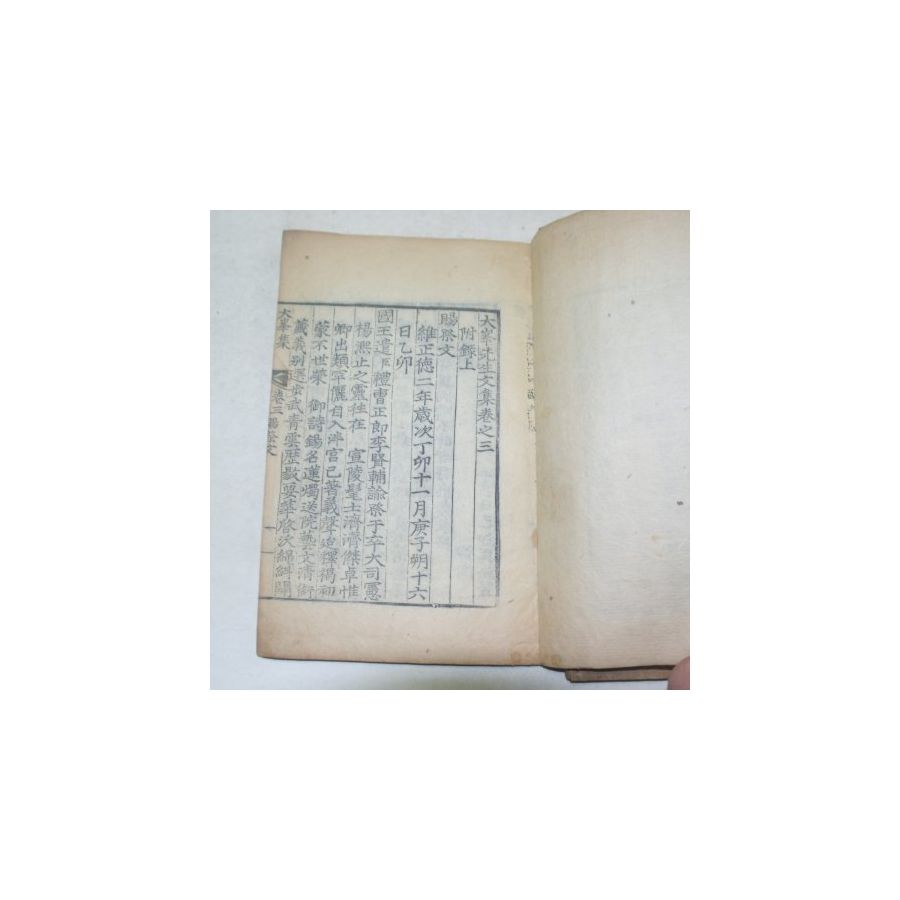 大峯先生文集卷之三
附錄上
賜祭文
維正德二年歲次丁卯十一月庚子朔十六
日乙卯
國王遣臣禮曹正郞李賢輔諭祭于卒大司憲
楊熙止之靈往在 宣陵髦士濟濟傑卓惟
卿出類罕儷自入泮宮已著義聲迨釋褐初
蒙不世榮 御詩錫名蓮燭送院藝文淸銜
薇義別選步武靑雲歷敭要華啓沃
大峯集
卷三 賜祭文
一